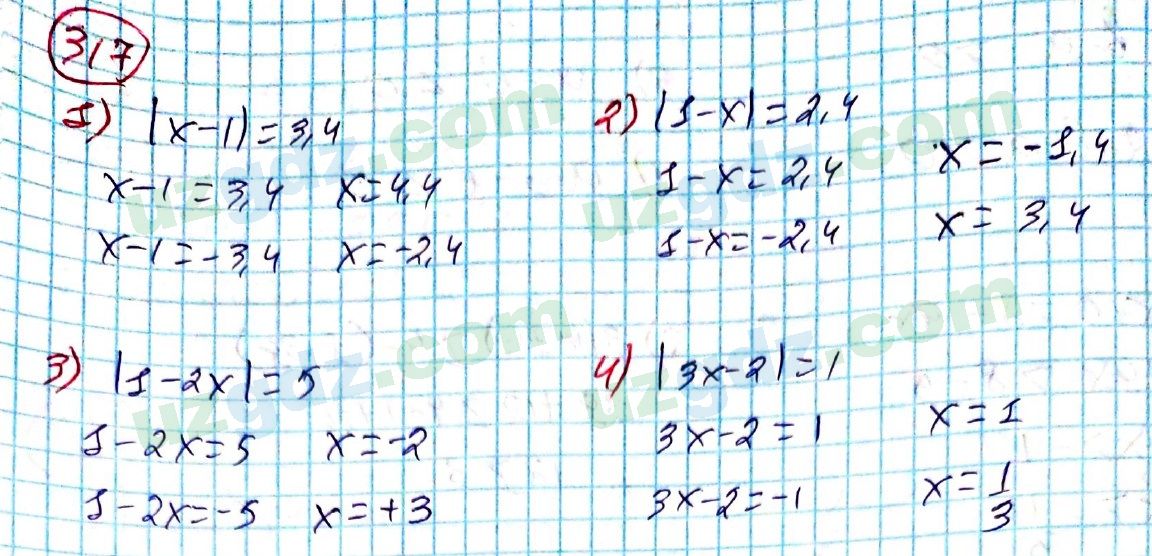 317
1) |x-1|=3,4
x-1=3,4 x=4,4
x-1=-3,4 x=-2,4
2) |1-x|=2,4
1-x=2,4 x=-1,4
1-x=-2,4 x=3,4
3) |1-2x|=5
1-2x=5 x=-2
1-2x=-5 x=+3
4) |3x-2|=1
3x-2=1 x=1
3x-2=-1 x=1/3
uzgdz.com
uzgdz.com
uzgdz.com
uzgdz.com